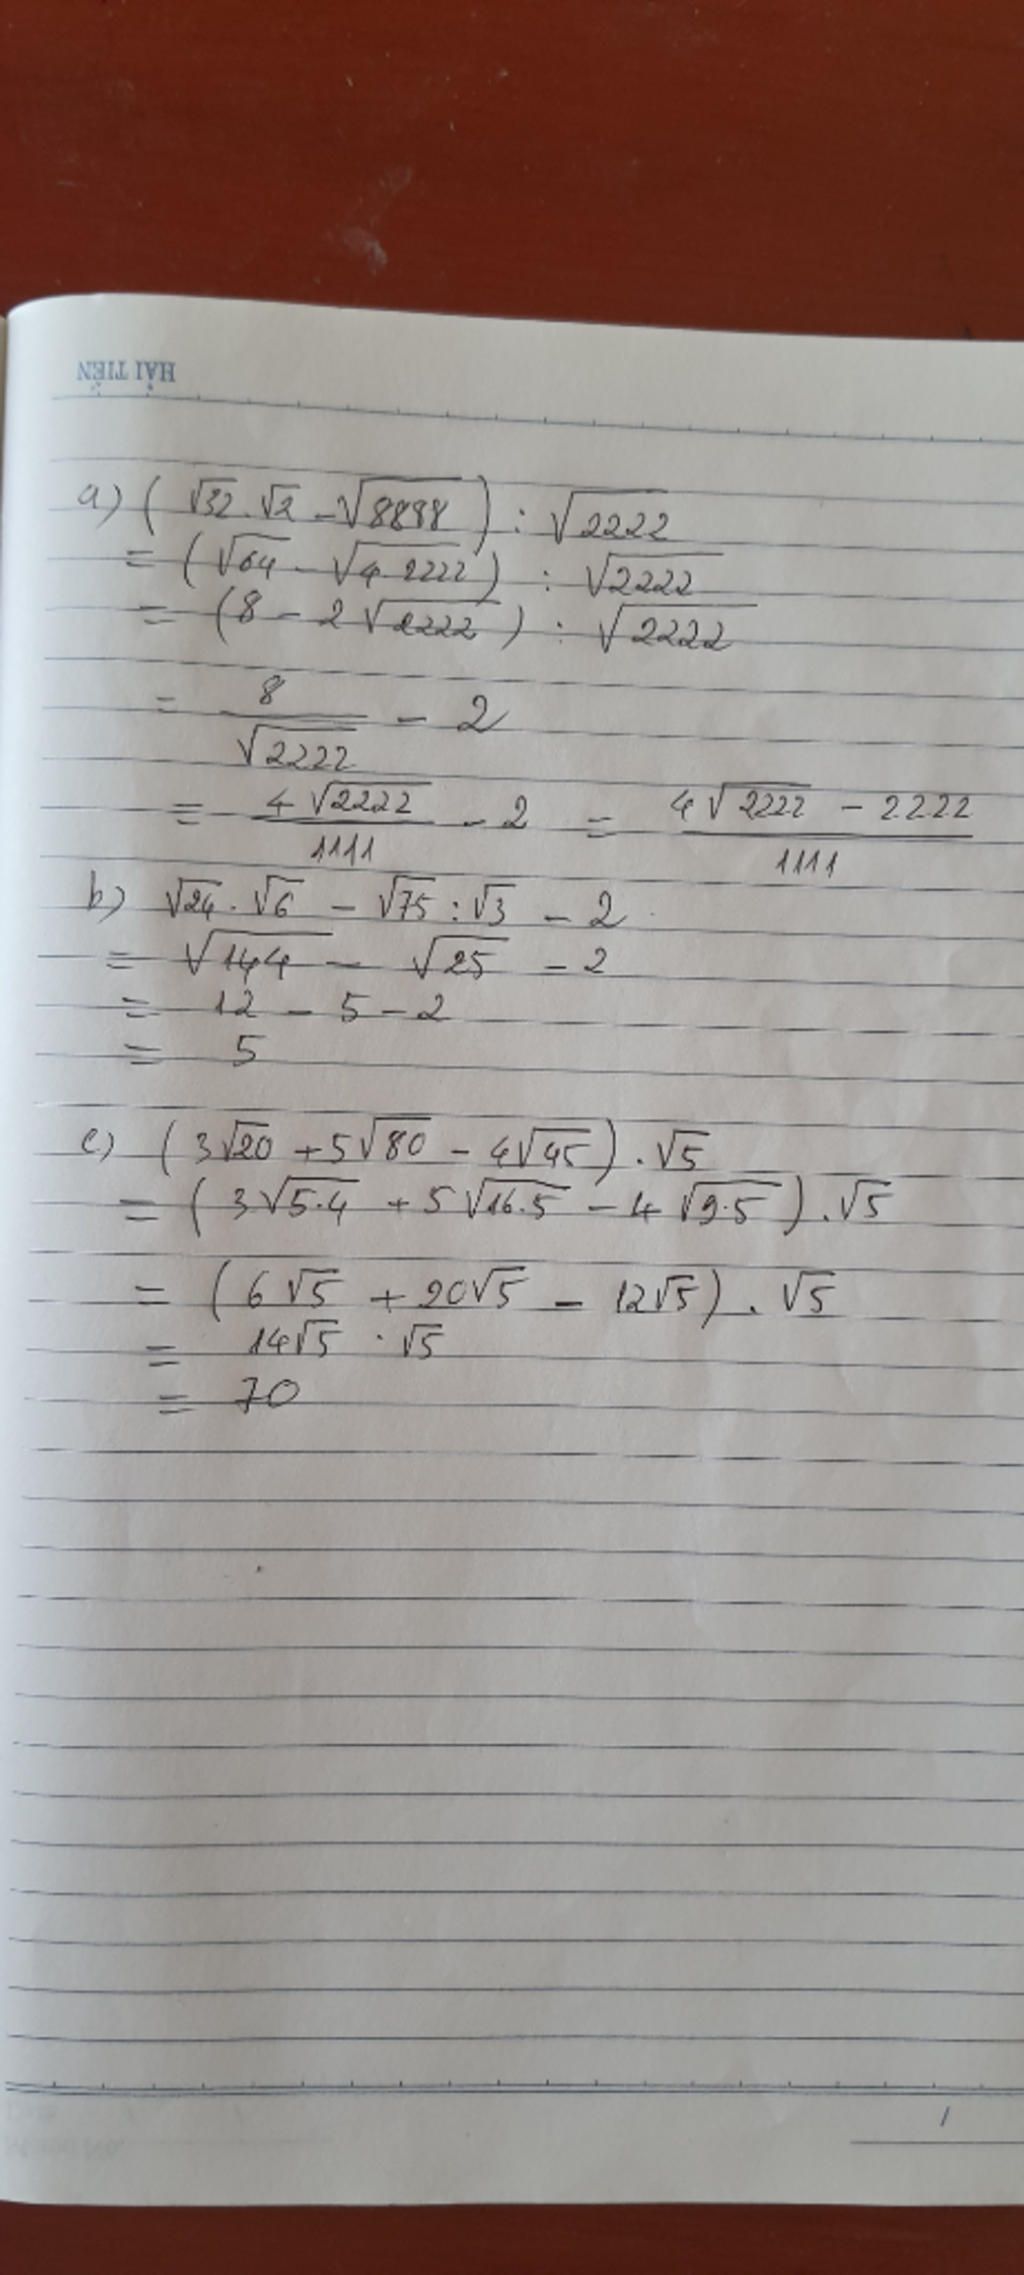 HẢI TIẾN
a) (√32 . √2 - √8888) : √2222
= (√64 - √4 2222) : √2222
= (8 - 2√2222) : √2222
= 8/√2222 - 2
= 4√2222/1111 - 2 = (4√2222 - 2222)/1111
b) √24 . √6 - √75 : √3 - 2
= √144 - √25 - 2
= 12 - 5 - 2
= 5
c) (3√20 + 5√80 - 4√45) . √5
= (3√5.4 + 5√16.5 - 4√9.5) . √5
= (6√5 + 20√5 - 12√5) . √5
= 14√5 . √5
= 70